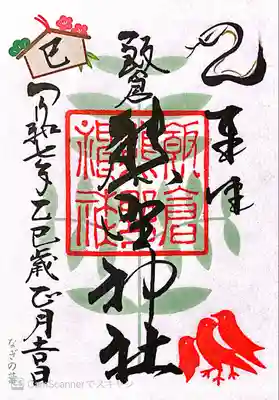 奉拝
飯倉
熊野神社
飯倉
熊野
神社
巳
令和七年乙巳歳正月吉日
なぎの葉
CamScannerでスキャン